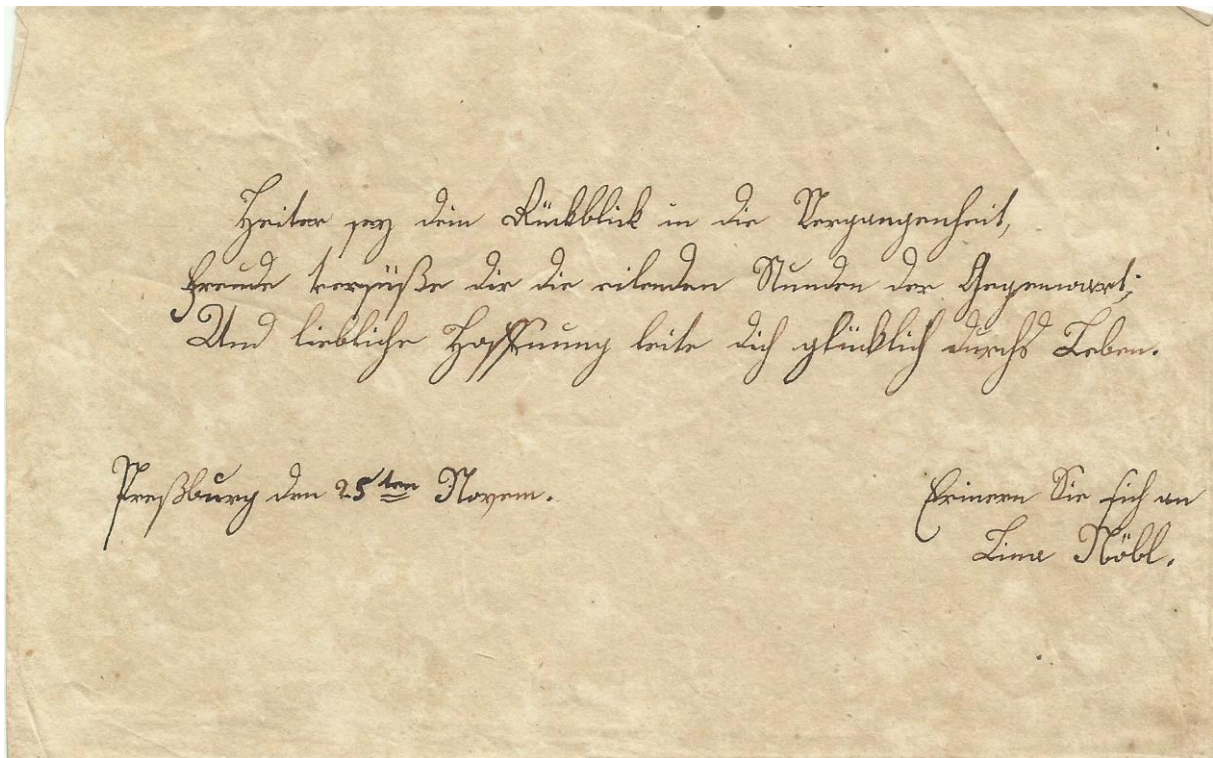 Heiter sey dein Rückblick in die Vergangenheit,
Freude versüße dir die eilenden Stunden der Gegenwart;
Und liebliche Hoffnung leite dich glücklich durchs Leben.
Preßburg den 25ten Novem.
Erinern Sie sich an
Lina Nöbl.